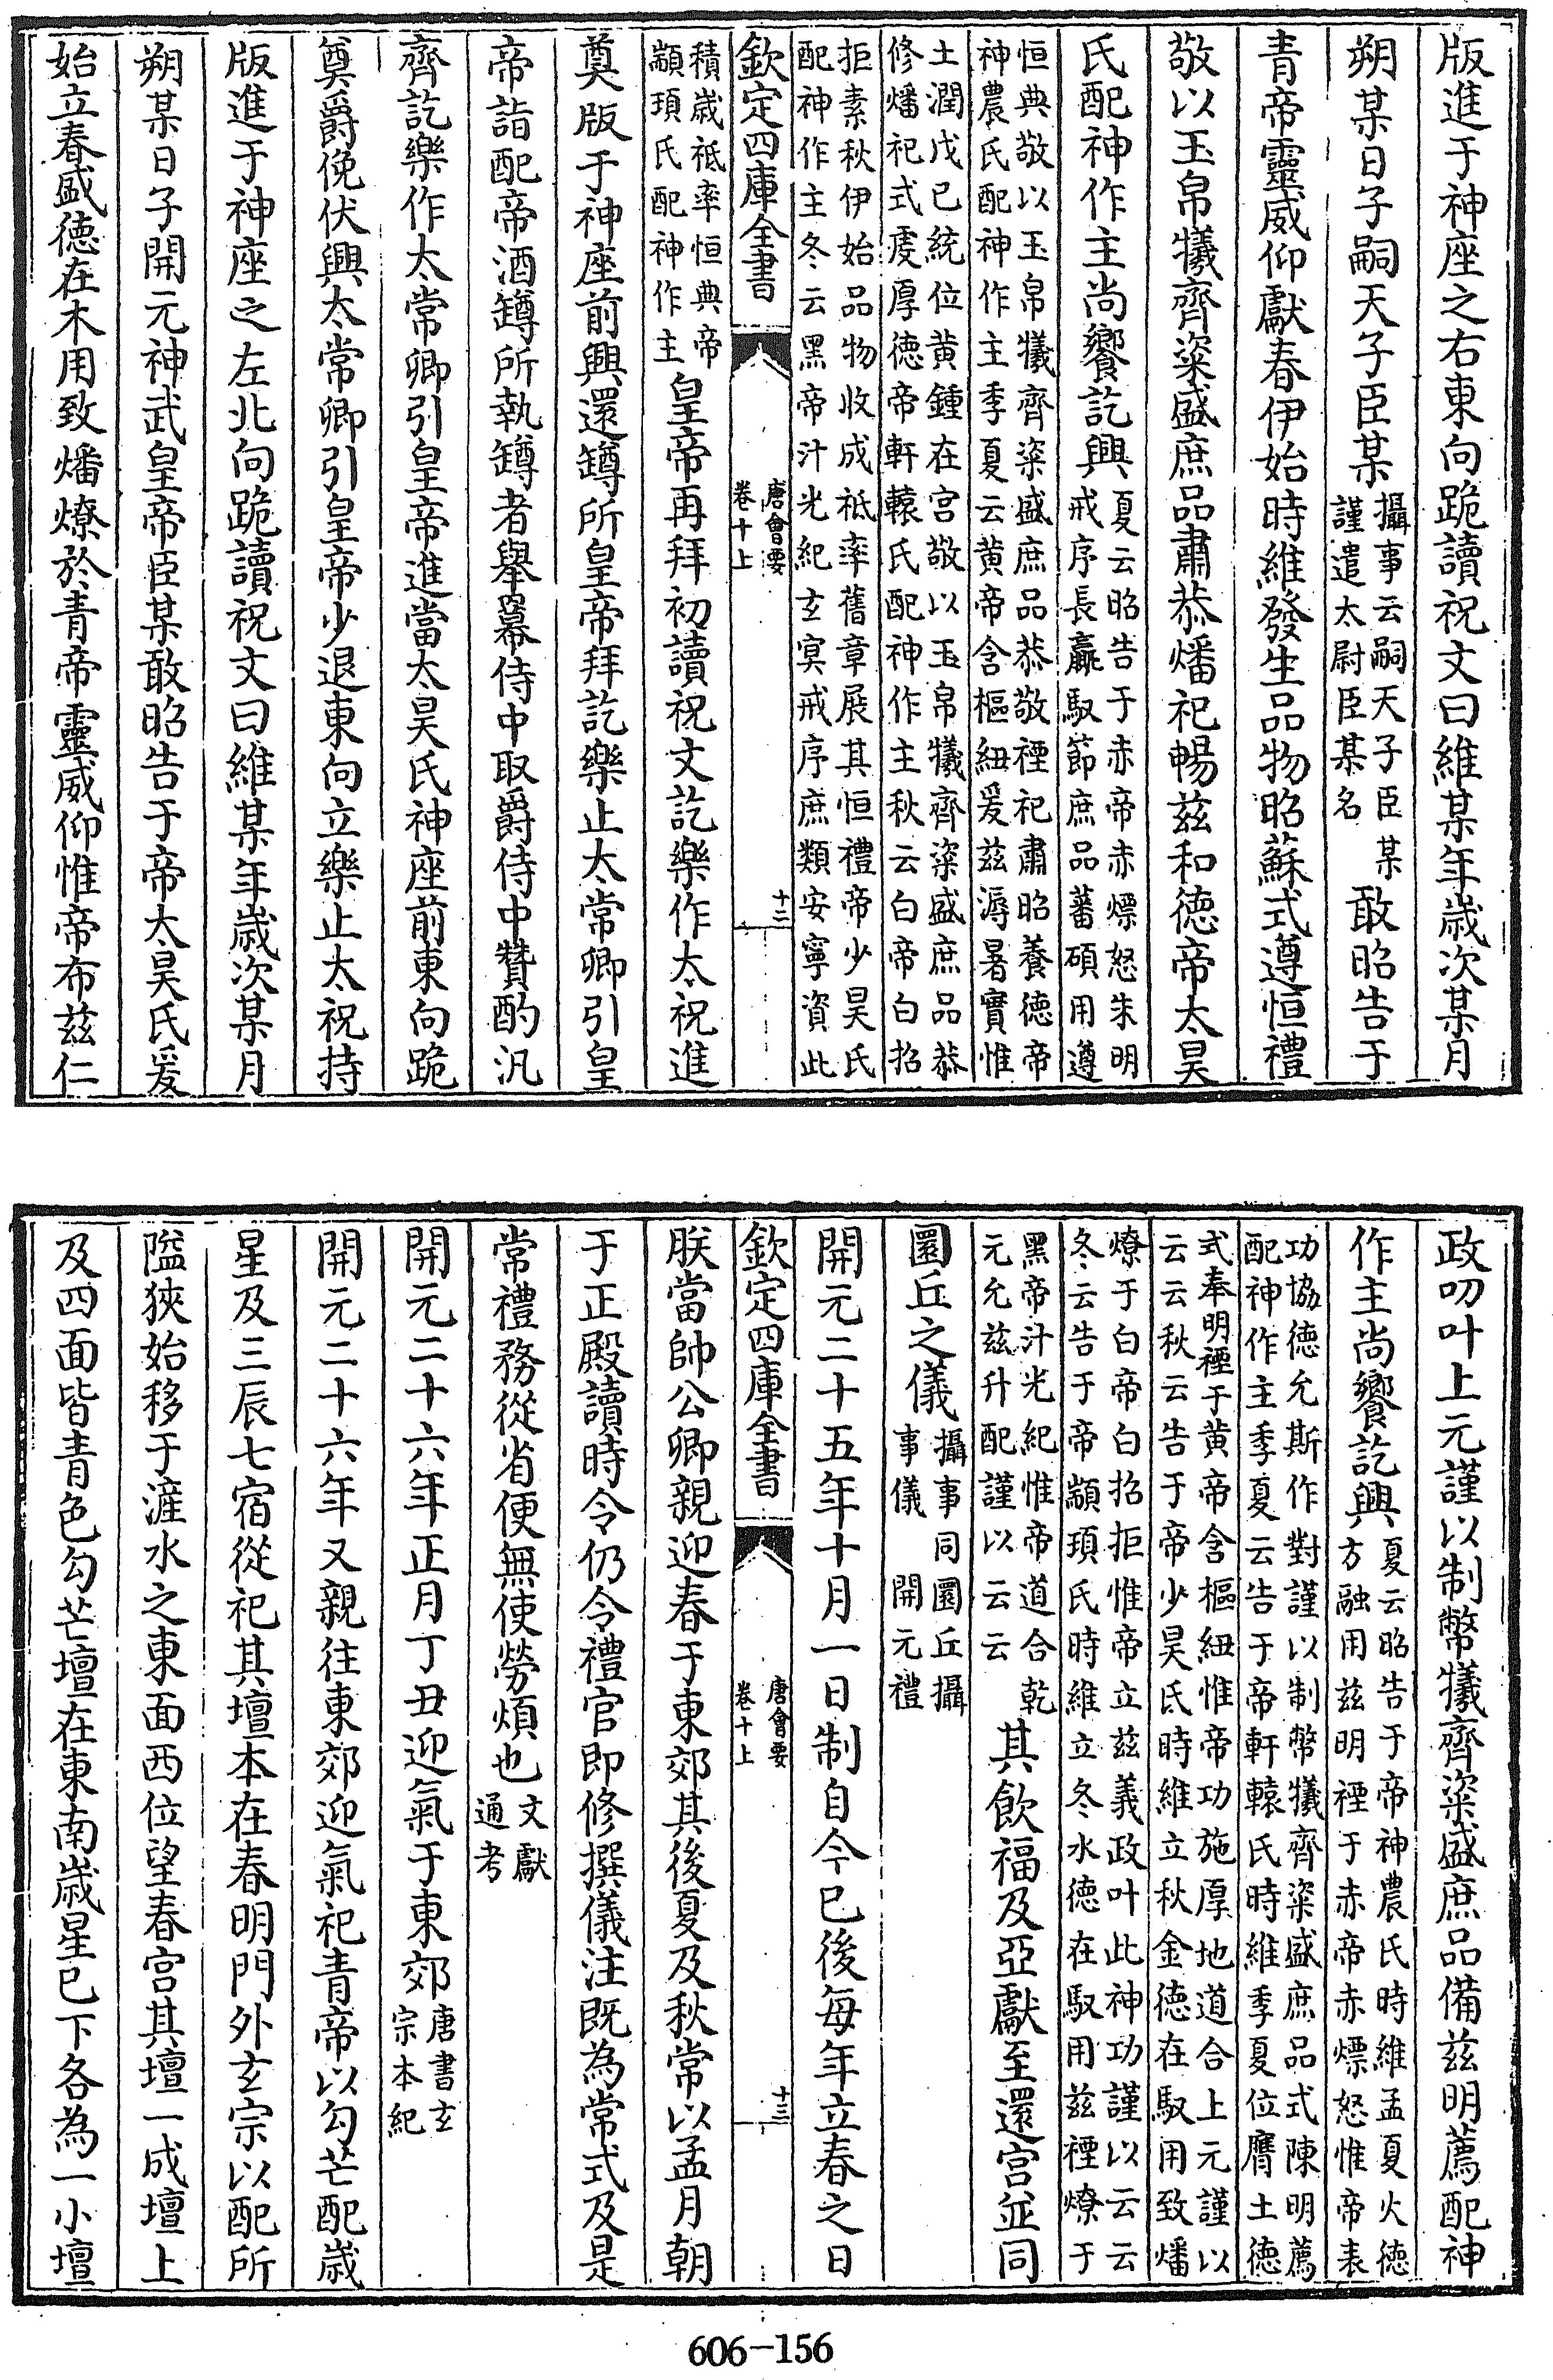 版進于神座之右東向跪讀祝文曰維某年歲次某月
朔某日子嗣天子臣某
攝事云嗣天子臣某
謹遣太尉臣某名
敢昭告于
青帝靈威仰獻春伊始時維發生品物昭蘇式遵恒禮
敬以玉帛犧齊粢盛庶品肅恭燔祀暢茲和德帝太昊
氏配神作主尚饗訖興
夏云昭告于赤帝赤熛怒朱明
戒序長贏馭節庶品蕃碩用遵
恒典敬以玉帛犧齊粢盛庶品恭敬禋祀肅昭養德帝
神農氏配神作主季夏云黄帝含樞紐爰茲溽暑實惟
土潤戊己統位黄鍾在宫敬以玉帛犧齊粢盛庶品恭
修燔祀式虔厚德帝軒轅氏配神作主秋云白帝白招
拒素秋伊始品物收成祗率舊章展其恒禮帝少昊氏
配神作主冬云黑帝汁光紀玄冥戒序庶類安寧資此
欽定四庫全書
唐會要
卷十上
十二
積歲祗率恒典帝
顓頊氏配神作主
皇帝再拜初讀祝文訖樂作太祝進
奠版于神座前興還罇所皇帝拜訖樂止太常卿引皇
帝詣配帝酒罇所執罇者舉羃侍中取爵侍中贊酌汎
齊訖樂作太常卿引皇帝進當太昊氏神座前東向跪
奠爵俛伏興太常卿引皇帝少退東向立樂止太祝持
版進于神座之左北向跪讀祝文曰維某年歲次某月
朔某日子開元神武皇帝臣某敢昭告于帝太昊氏爰
始立春盛德在木用致燔燎於青帝靈威仰惟帝布茲仁
政叨叶上元謹以制幣犧齊粢盛庶品備茲明薦配神
作主尚饗訖興
夏云昭告于帝神農氏時維孟夏火德
方融用茲明禋于赤帝赤熛怒惟帝表
功協德允斯作對謹以制幣犧齊粢盛庶品式陳明薦
配神作主季夏云告于帝軒轅氏時維季夏位膺土德
式奉明禋于黄帝含樞紐惟帝功施厚地道合上元謹以
云云秋云告于帝少昊氏時維立秋金德在馭用致燔
燎于白帝白招拒惟帝立茲義政叶此神功謹以云云
冬云告于帝顓頊氏時維立冬水德在馭用茲禋燎于
黑帝汁光紀惟帝道合乾
元允茲升配謹以云云
其飲福及亞獻至還宫並同
圜丘之儀
攝事同圜丘攝
事儀 開元禮
開元二十五年十月一日制自今已後每年立春之日
欽定四庫全書
唐會要
卷十上
十三
朕當帥公卿親迎春于東郊其後夏及秋常以孟月朝
于正殿讀時令仍令禮官即修撰儀注既為常式及是
常禮務從省便無使勞煩也
文獻
通考
開元二十六年正月丁丑迎氣于東郊
唐書玄
宗本紀
開元二十六年又親往東郊迎氣祀青帝以勾芒配歲
星及三辰七宿從祀其壇本在春明門外玄宗以配所
隘狹始移于滻水之東面西位望春宫其壇一成壇上
及四面皆青色勾芒壇在東南歲星已下各為一小壇
606-156